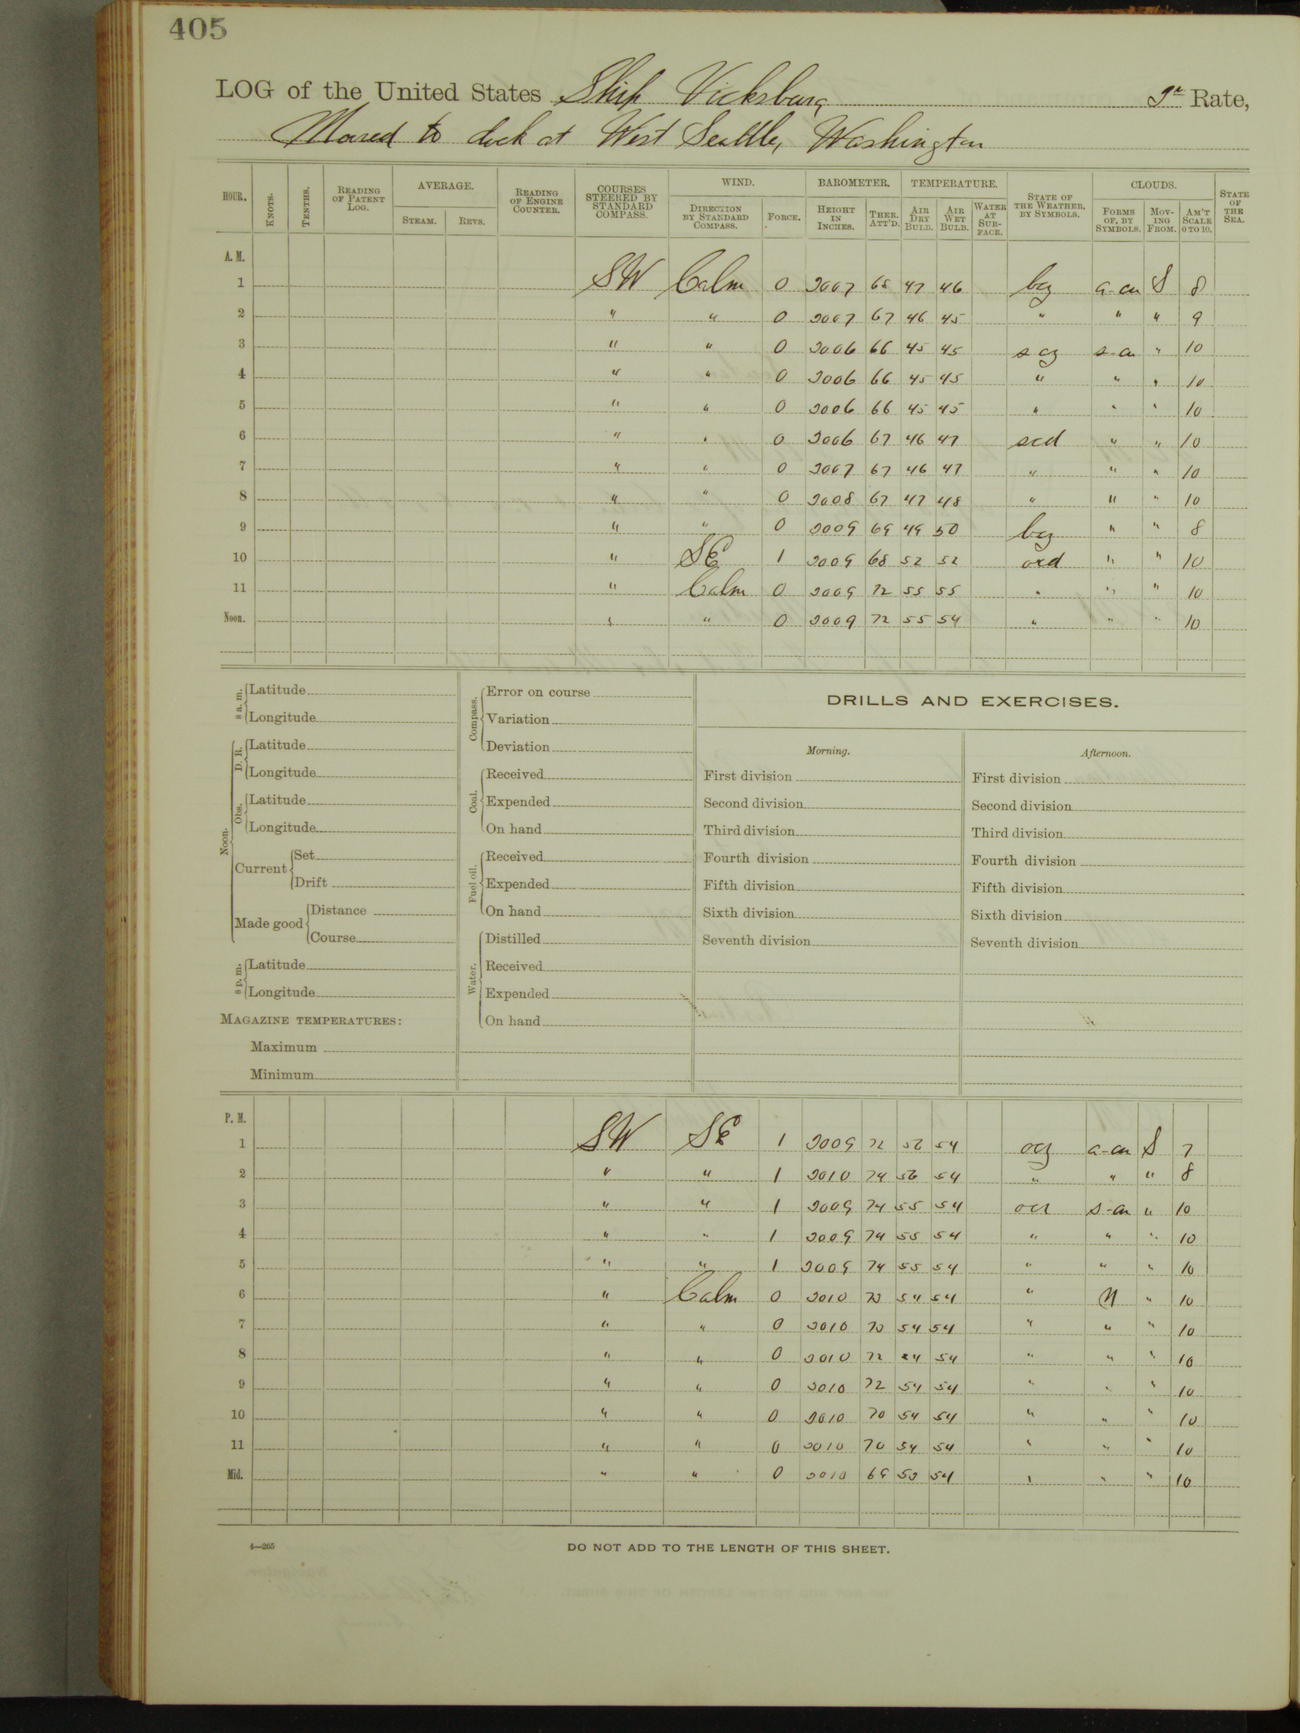 405
LOG of the United States Ship Vicksburg Rate,
Moored to dock at West Seattle, Washington
HOUR. KNOTS. TENTHS. READING OF PATENT LOG. AVERAGE. STEAM. REVS. READING OF ENGINE COUNTER. COURSES STEERED BY STANDARD COMPASS. WIND. DIRECTION BY STANDARD COMPASS. FORCE. BAROMETER. HEIGHT IN INCHES. THER. ATT'D. TEMPERATURE. AIR DRY BULB. AIR WET BULB. WATER AT SURFACE. STATE OF THE WEATHER, BY SYMBOLS. CLOUDS. FORMS OF, BY SYMBOLS. MOVING FROM. AM'T SCALE 0 TO 10. STATE OF THE SEA.
A. M.
1 SW Calm 0 3007 68 47 46 bcz a-cu S 8
2 " " 0 3007 67 46 45 " " " 9
3 " " 0 3006 66 45 45 s-cu " 10
4 " " 0 3006 66 45 45 " " " 10
5 " " 0 3006 66 45 45 " " " 10
6 " " 0 3006 67 46 47 " " 10
7 " " 0 3007 67 46 47 " " " 10
8 " " 0 3008 67 47 48 " " " 10
9 " " 0 3009 69 49 50 bcz " " 8
10 " SE 1 3009 68 52 52 " " 10
11 " Calm 0 3009 72 55 55 " " " 10
Noon. " " 0 3009 72 55 54 " " " 10
8 a. m. Latitude
Longitude
Noon. D. R. Latitude
Longitude
Obs. Latitude
Longitude
Current Set
Drift
Made good Distance
Course
8 p. m. Latitude
Longitude
MAGAZINE TEMPERATURES:
Maximum
Minimum
Compass. Error on course
Variation
Deviation
Coal. Received
Expended
On hand
Fuel oil. Received
Expended
On hand
Water. Distilled
Received
Expended
On hand
DRILLS AND EXERCISES.
Morning.
First division
Second division
Third division
Fourth division
Fifth division
Sixth division
Seventh division
Afternoon.
First division
Second division
Third division
Fourth division
Fifth division
Sixth division
Seventh division
P. M.
1 SW SE 1 3009 72 56 54 ocz a-cu S 7
2 " " 1 3010 74 56 54 " " " 8
3 " " 1 3009 74 55 54 ocr s-cu " 10
4 " " 1 3009 74 55 54 " " " 10
5 " " 1 3009 74 55 54 " " " 10
6 " Calm 0 3010 54 54 " N " 10
7 " " 0 3010 54 54 " " " 10
8 " " 0 3010 72 54 54 " " " 10
9 " " 0 3010 72 54 54 " " " 10
10 " " 0 3010 70 54 54 " " " 10
11 " " 0 3010 70 54 54 " " " 10
Mid. " " 0 3010 69 54 " " " 10
4—265
DO NOT ADD TO THE LENGTH OF THIS SHEET.